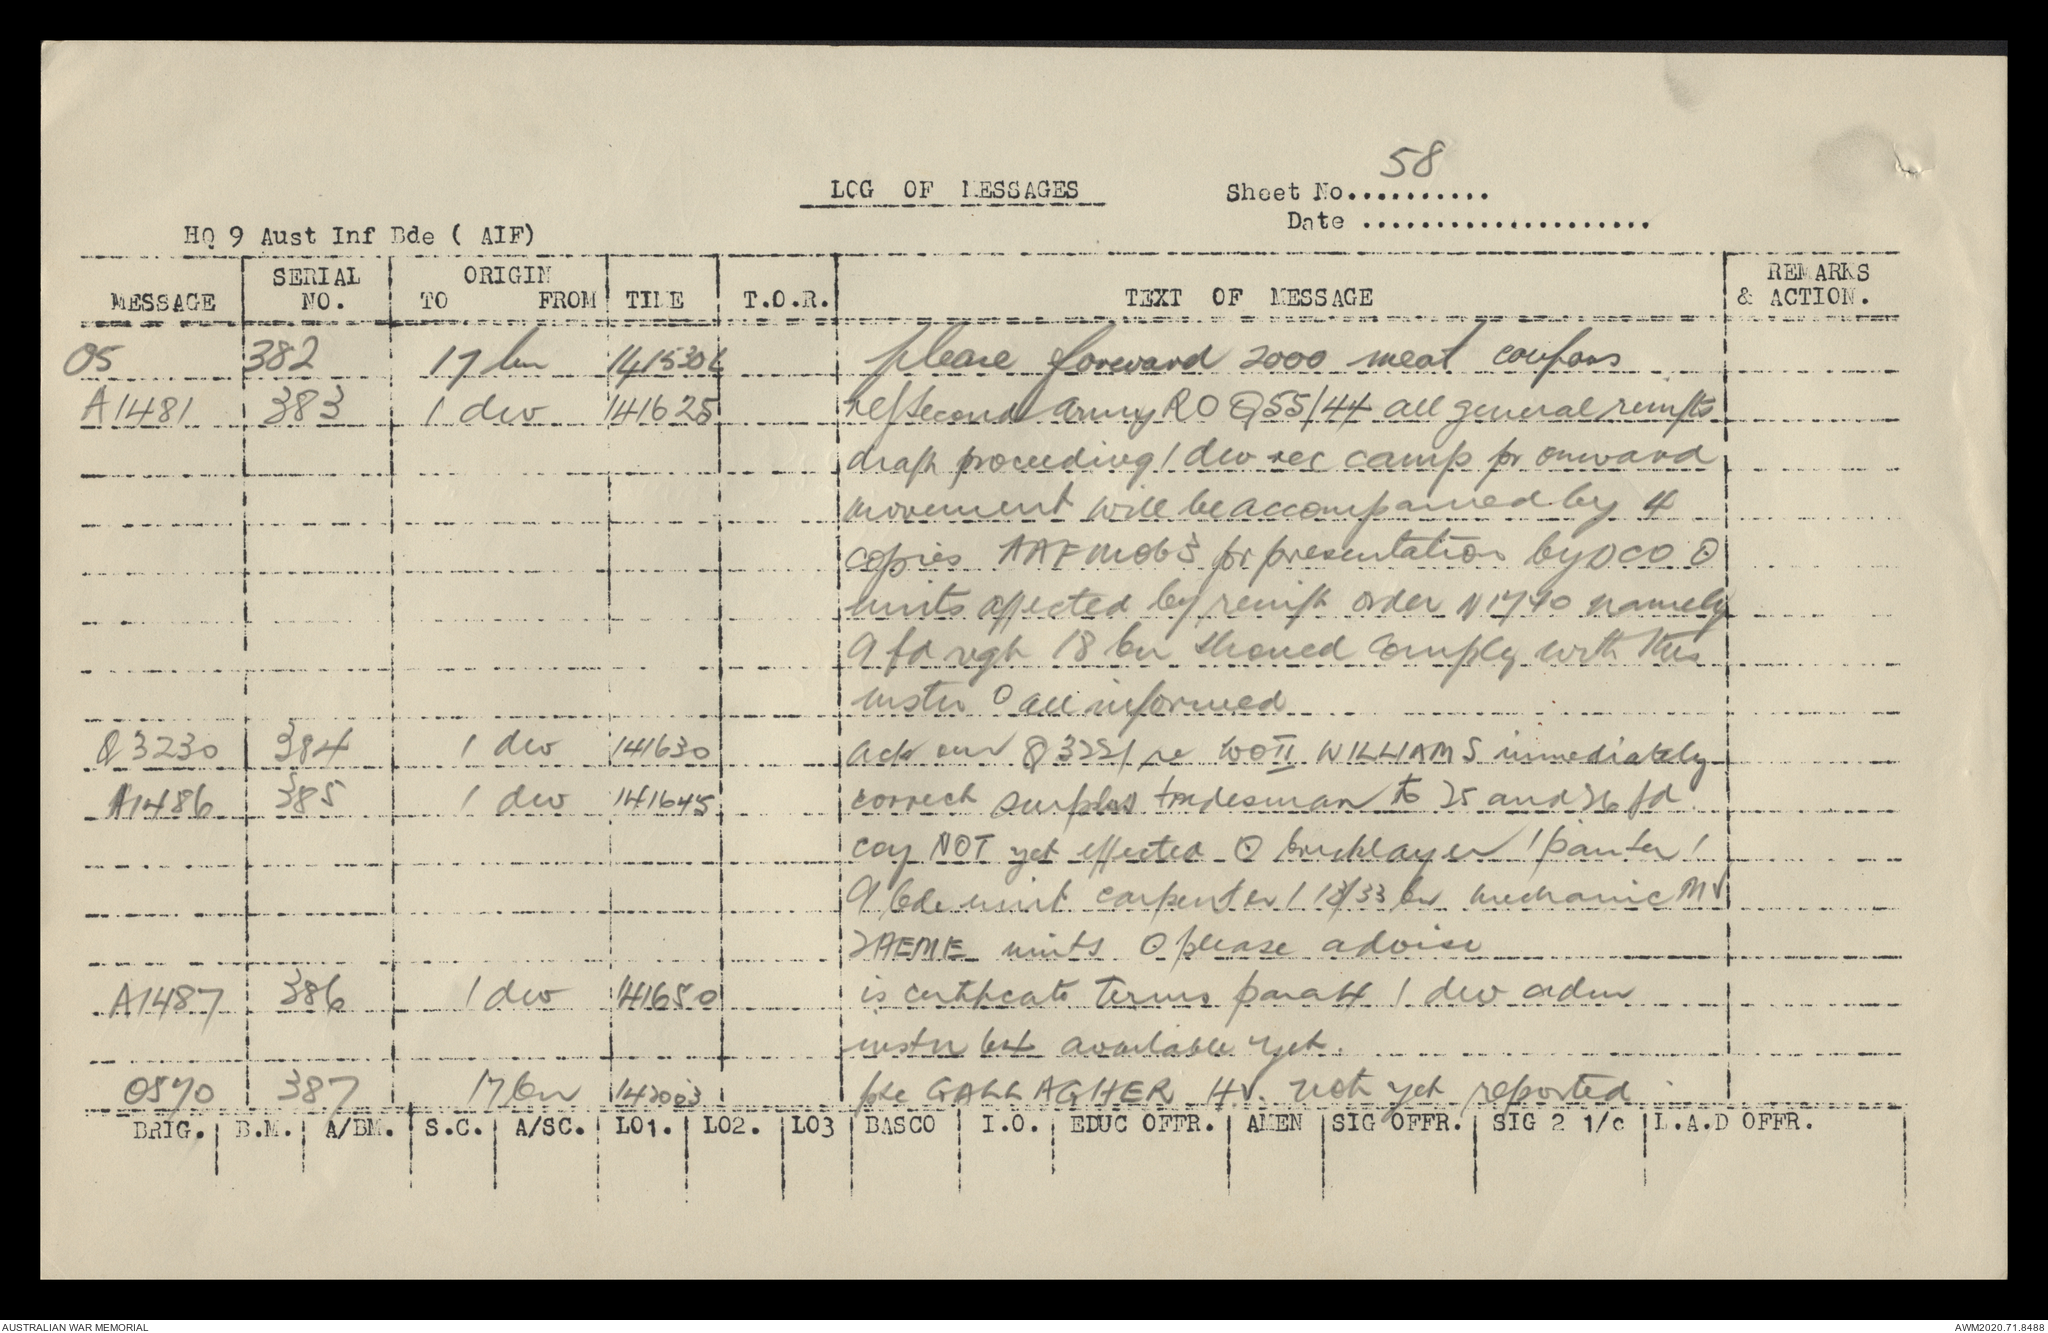 58
LOG OF MESSAGES
Sheet No...........
Date ....................
HQ 9 Aust Inf Bde ( AIF)
MESSAGE SERIAL NO. ORIGIN TO FROM TIME T.O.R. TEXT OF MESSAGE REMARKS & ACTION.
O5 382 17 bn 141530L please forward 2000 meat coupons
A1481 383 1 div 141625 ref second army RO Q55/44 all general reinfts
draft proceeding 1 div rec camp for onward
movement will be accompanied by 4
copies AAF mob 3 for presentation by OCO ⊙
units affected by reinft order N1740 namely
9 fd regt 18 bn should comply with this
instn ⊙ all informed
Q3230 384 1 div 141630 ack our Q3221 re WOII WILLIAMS immediately
A1486 385 1 div 141645 correct surplus tradesman to 25 and 26 fd
coy NOT yet effected ⊙ bricklayer 1 painter 1
9 bde unit carpenter 1 13/33 bn mechanic MV
2 AEME units ⊙ please advise
A1487 386 1 div 141650 is certificate terms para 4 1 div adm
instn 64 available yet.
O570 387 17 bn pte GALLAGHER H.V. not yet reported
BRIG. B.M. A/BM. S.C. A/SC. LO1. LO2. LO3 BASCO I.O. EDUC OFFR. AMEN SIG OFFR. SIG 2 1/c L.A.D OFFR.
AUSTRALIAN WAR MEMORIAL AWM2020.71.8488